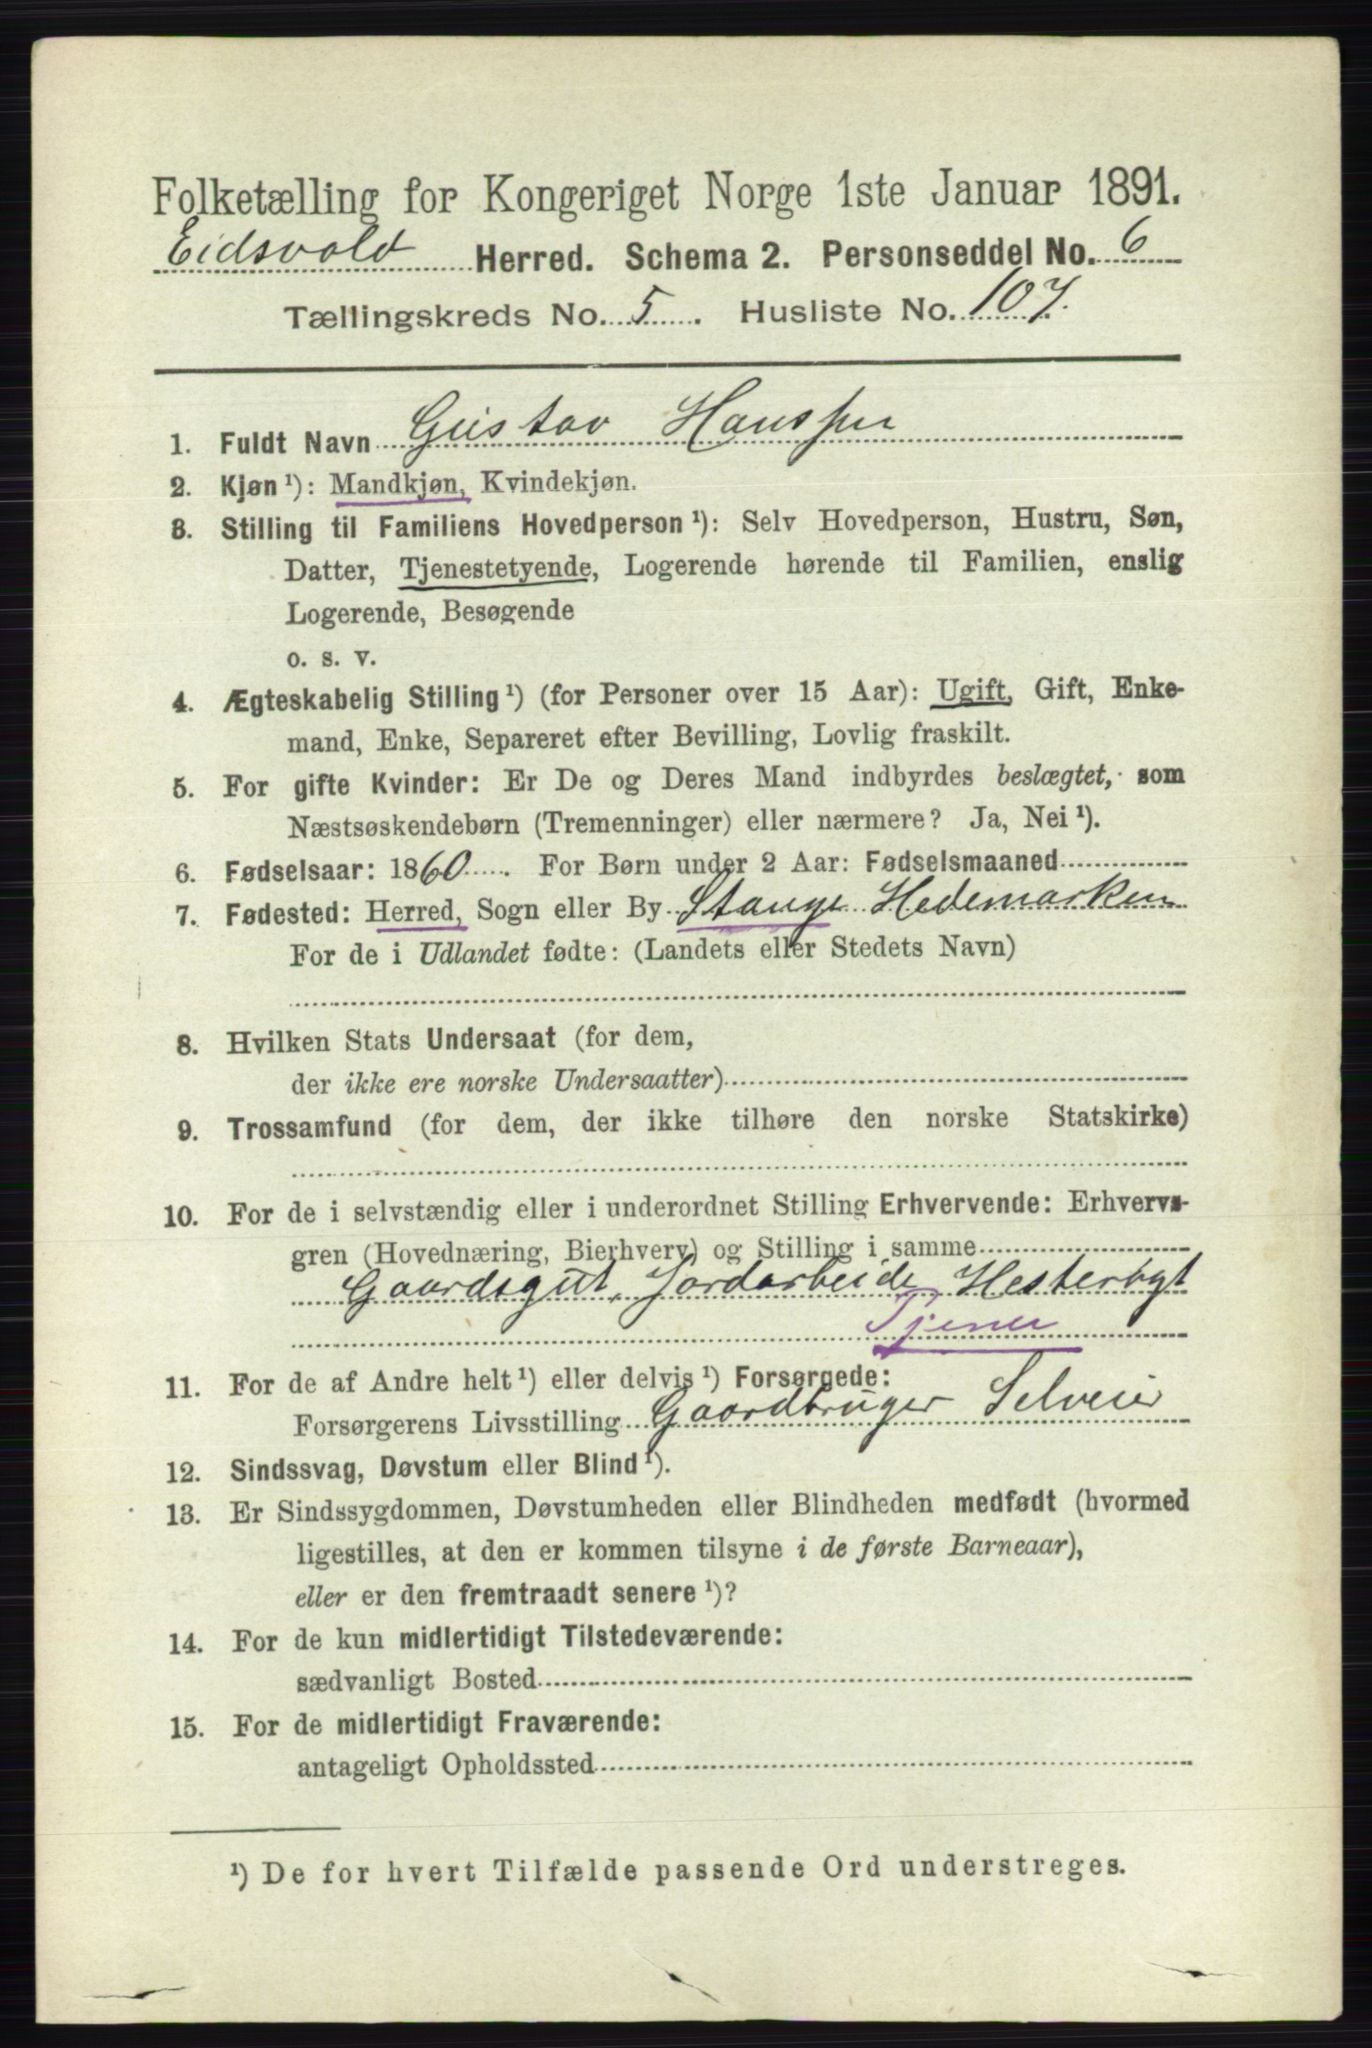 Folketælling for Kongeriget Norge 1ste Januar 1891.
Eidsvold Herred. Schema 2. Personseddel No. 6
Tællingskreds No. 5. Husliste No. 107.
1. Fuldt Navn Gustav Hanssen
2. Kjøn¹): Mandkjøn, Kvindekjøn.
3. Stilling til Familiens Hovedperson¹): Selv Hovedperson, Hustru, Søn,
Datter, Tjenestetyende, Logerende hørende til Familien, enslig
Logerende, Besøgende
o. s. v.
4. Ægteskabelig Stilling¹) (for Personer over 15 Aar): Ugift, Gift, Enke-
mand, Enke, Separeret efter Bevilling, Lovlig fraskilt.
5. For gifte Kvinder: Er De og Deres Mand indbyrdes beslægtet, som
Næstsøskendebørn (Tremenninger) eller nærmere? Ja, Nei¹).
6. Fødselsaar: 1860. For Børn under 2 Aar: Fødselsmaaned
7. Fødested: Herred, Sogn eller By Stange Hedemarken
For de i Udlandet fødte: (Landets eller Stedets Navn)
8. Hvilken Stats Undersaat (for dem,
der ikke ere norske Undersaatter)
9. Trossamfund (for dem, der ikke tilhøre den norske Statskirke)
10. For de i selvstændig eller i underordnet Stilling Erhvervende: Erhvervs-
gren (Hovednæring, Bierhverv) og Stilling i samme
Gaardsgut, Jordarbeide, Hesterygt
Tjener
11. For de af Andre helt¹) eller delvis¹) Forsørgede:
Forsørgerens Livsstilling Gaardbruger Selveier
12. Sindssvag, Døvstum eller Blind¹).
13. Er Sindssygdommen, Døvstumheden eller Blindheden medfødt (hvormed
ligestilles, at den er kommen tilsyne i de første Barneaar),
eller er den fremtraadt senere¹)?
14. For de kun midlertidigt Tilstedeværende:
sædvanligt Bosted
15. For de midlertidigt Fraværende:
antageligt Opholdssted
¹) De for hvert Tilfælde passende Ord understreges.